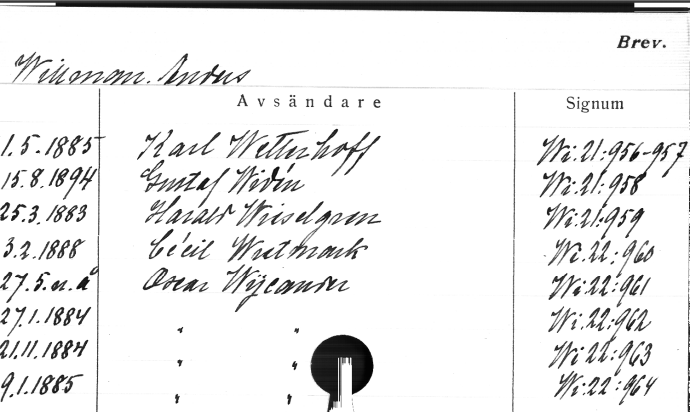 Brev.
Willman. Anders
Avsändare Signum
1.5.1885 Karl Wetterhoff Wi.21:956-957
15.8.1894 Gustaf Widén Wi.21:958
25.3.1883 Harald Wieselgren Wi.21:959
3.2.1888 Cécil Wretmark Wi.22:960
27.5.u.å Oscar Wijcander Wi.22:961
27.1.1884 " " Wi.22:962
21.11.1884 " " Wi.22:963
9.1.1885 " " Wi.22:964